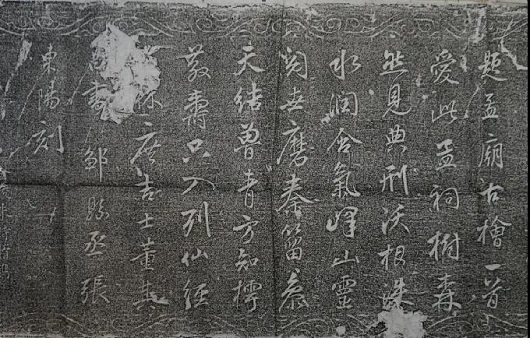 題孟廟古檜一首
愛此孟祠樹森
然見典刑沃根洙
水潤含氣嶧山靈
閱世磨秦籀參
天結魯青方知樗
散壽只入列仙經
林庶吉士董其
書 鄒縣丞張
東陽刻